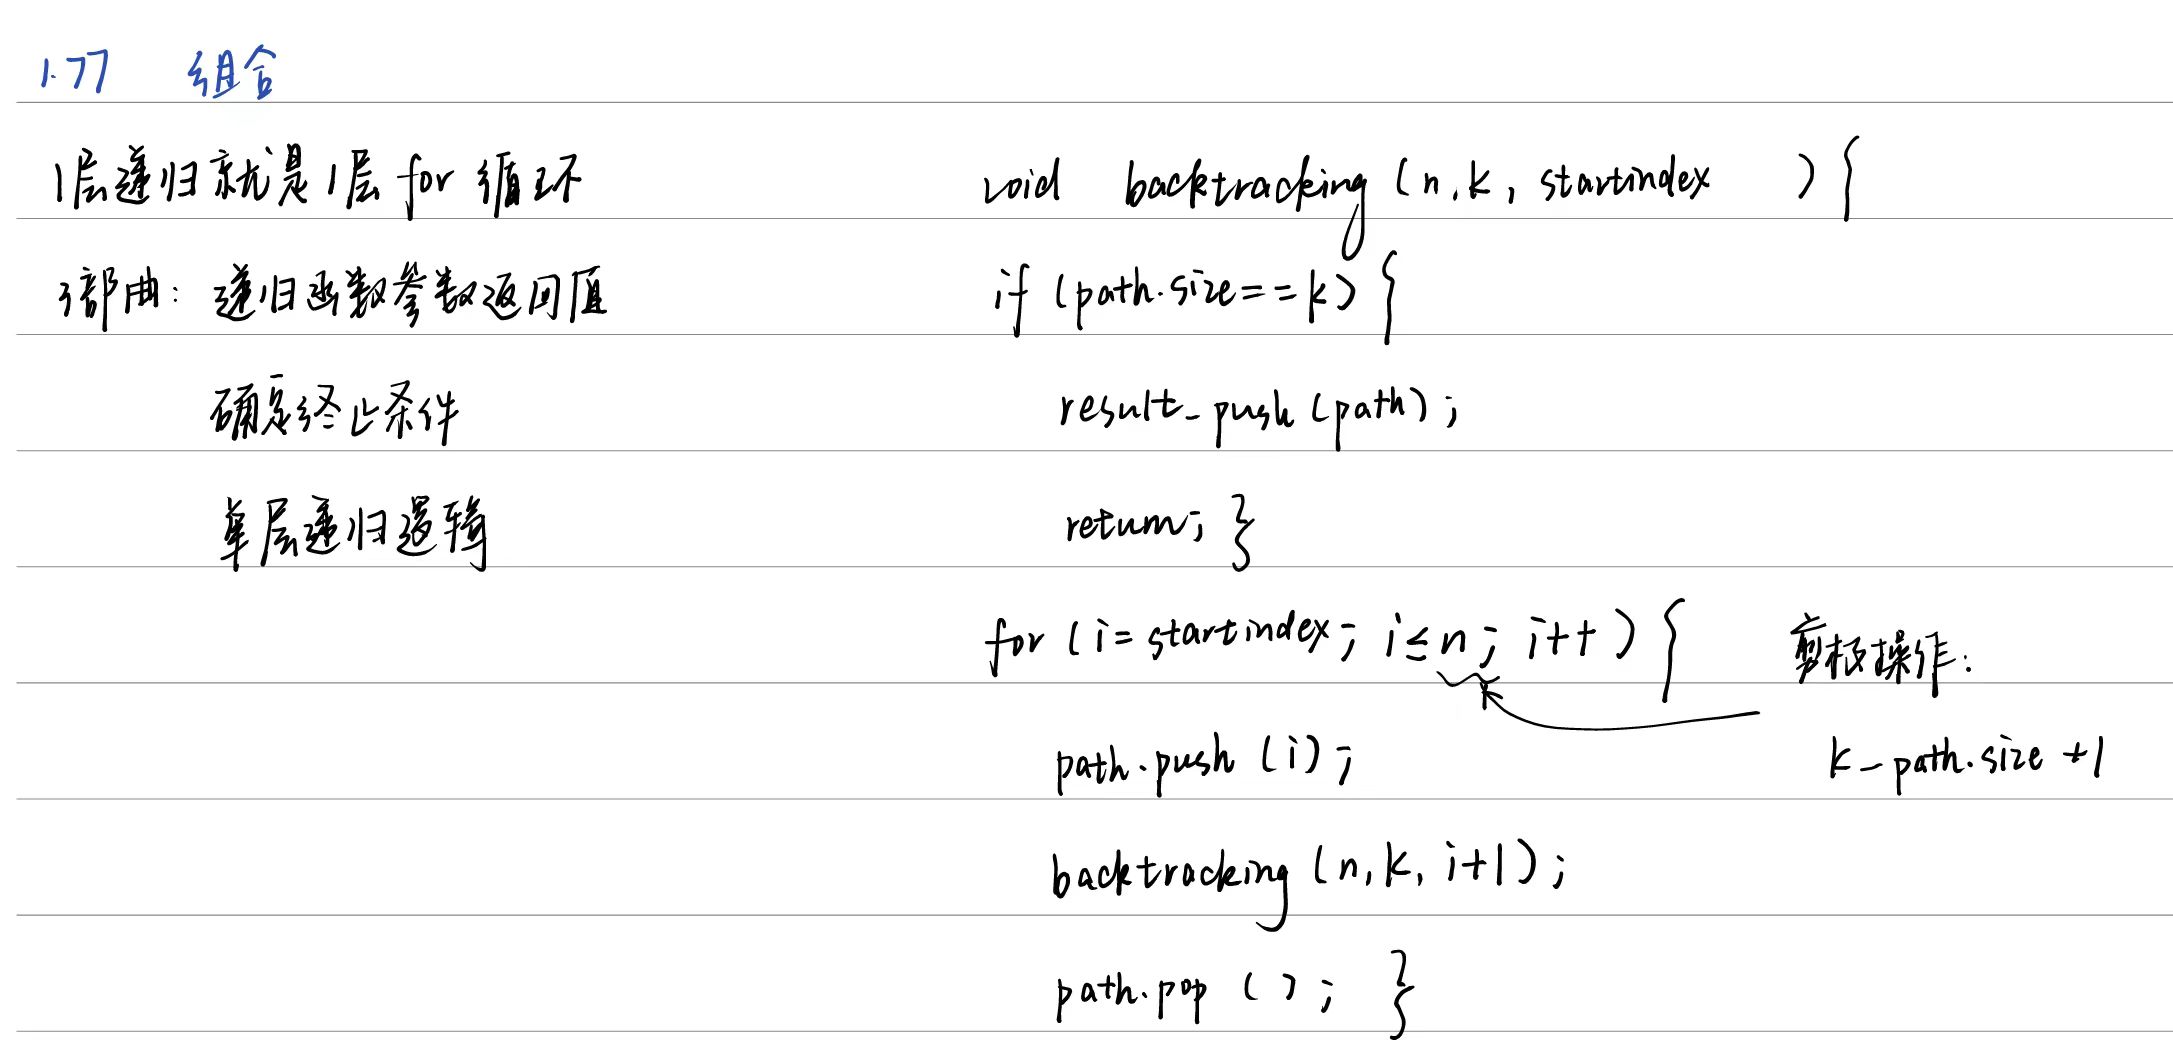 1.77 组合
1层递归就是1层for循环
3部曲：递归函数参数返回值
确定终止条件
单层递归逻辑
void backtracking (n, k, startindex ) {
if (path.size==k) {
result_push (path);
return; }
for (i= startindex; i≤n; i++) {
path.push (i);
backtracking (n, k, i+1);
path.pop ( ); }
剪枝操作：
k-path.size +1